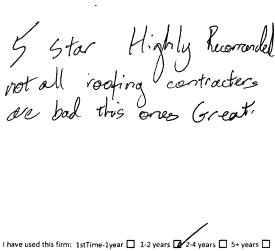 5 star Highly Recomended
not all roofing contracters
are bad this ones Great.
I have used this firm: 1stTime-1year ☐ 1-2 years ☑ 2-4 years ☐ 5+ years ☐